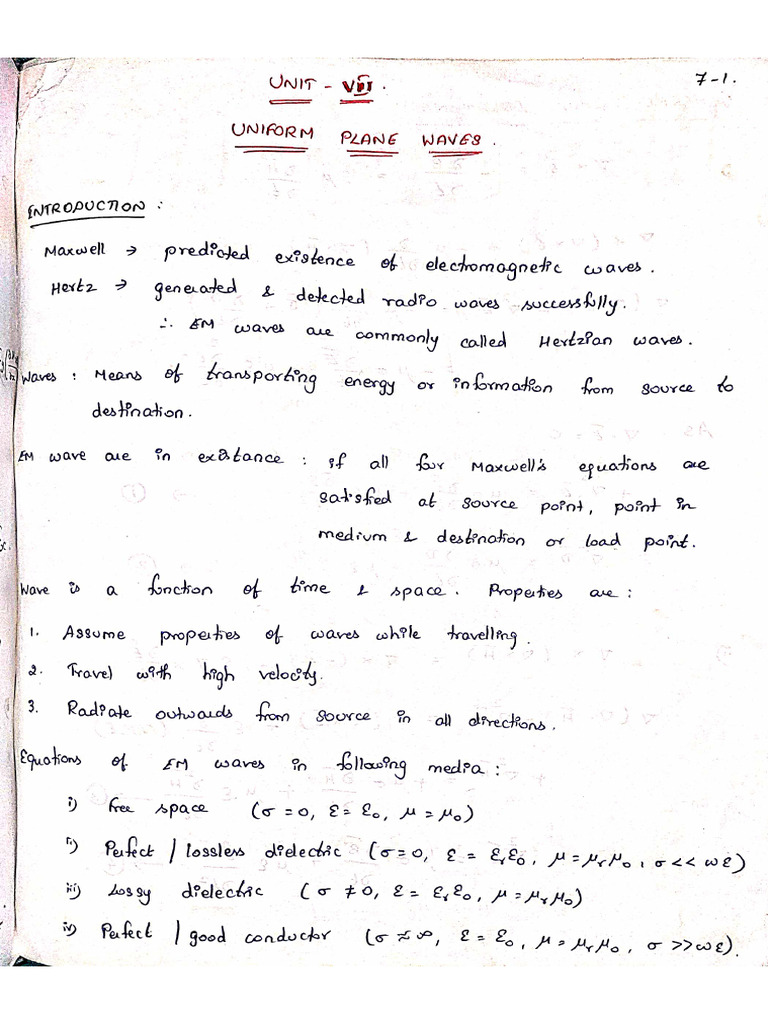 7-1.
UNIT - VII.
UNIFORM PLANE WAVES.
INTRODUCTION :
Maxwell → predicted existence of electromagnetic waves.
Hertz → generated & detected radio waves successfully.
∴ EM waves are commonly called Hertzian waves.
Waves : Means of transporting energy or information from source to
destination.
EM wave are in existance : if all four Maxwell's equations are
satisfied at source point, point in
medium & destination or load point.
Wave is a function of time & space. Properties are :
1. Assume properties of waves while travelling.
2. Travel with high velocity.
3. Radiate outwards from source in all directions.
Equations of EM waves in following media :
i) Free space (σ = 0, ε = ε₀, μ = μ₀)
ii) Perfect / lossless dielectric (σ = 0, ε = εᵣε₀, μ = μᵣμ₀, σ << ωε)
iii) Lossy dielectric (σ ≠ 0, ε = εᵣε₀, μ = μᵣμ₀)
iv) Perfect / good conductor (σ ≈ ∞, ε = ε₀, μ = μᵣμ₀, σ >> ωε).